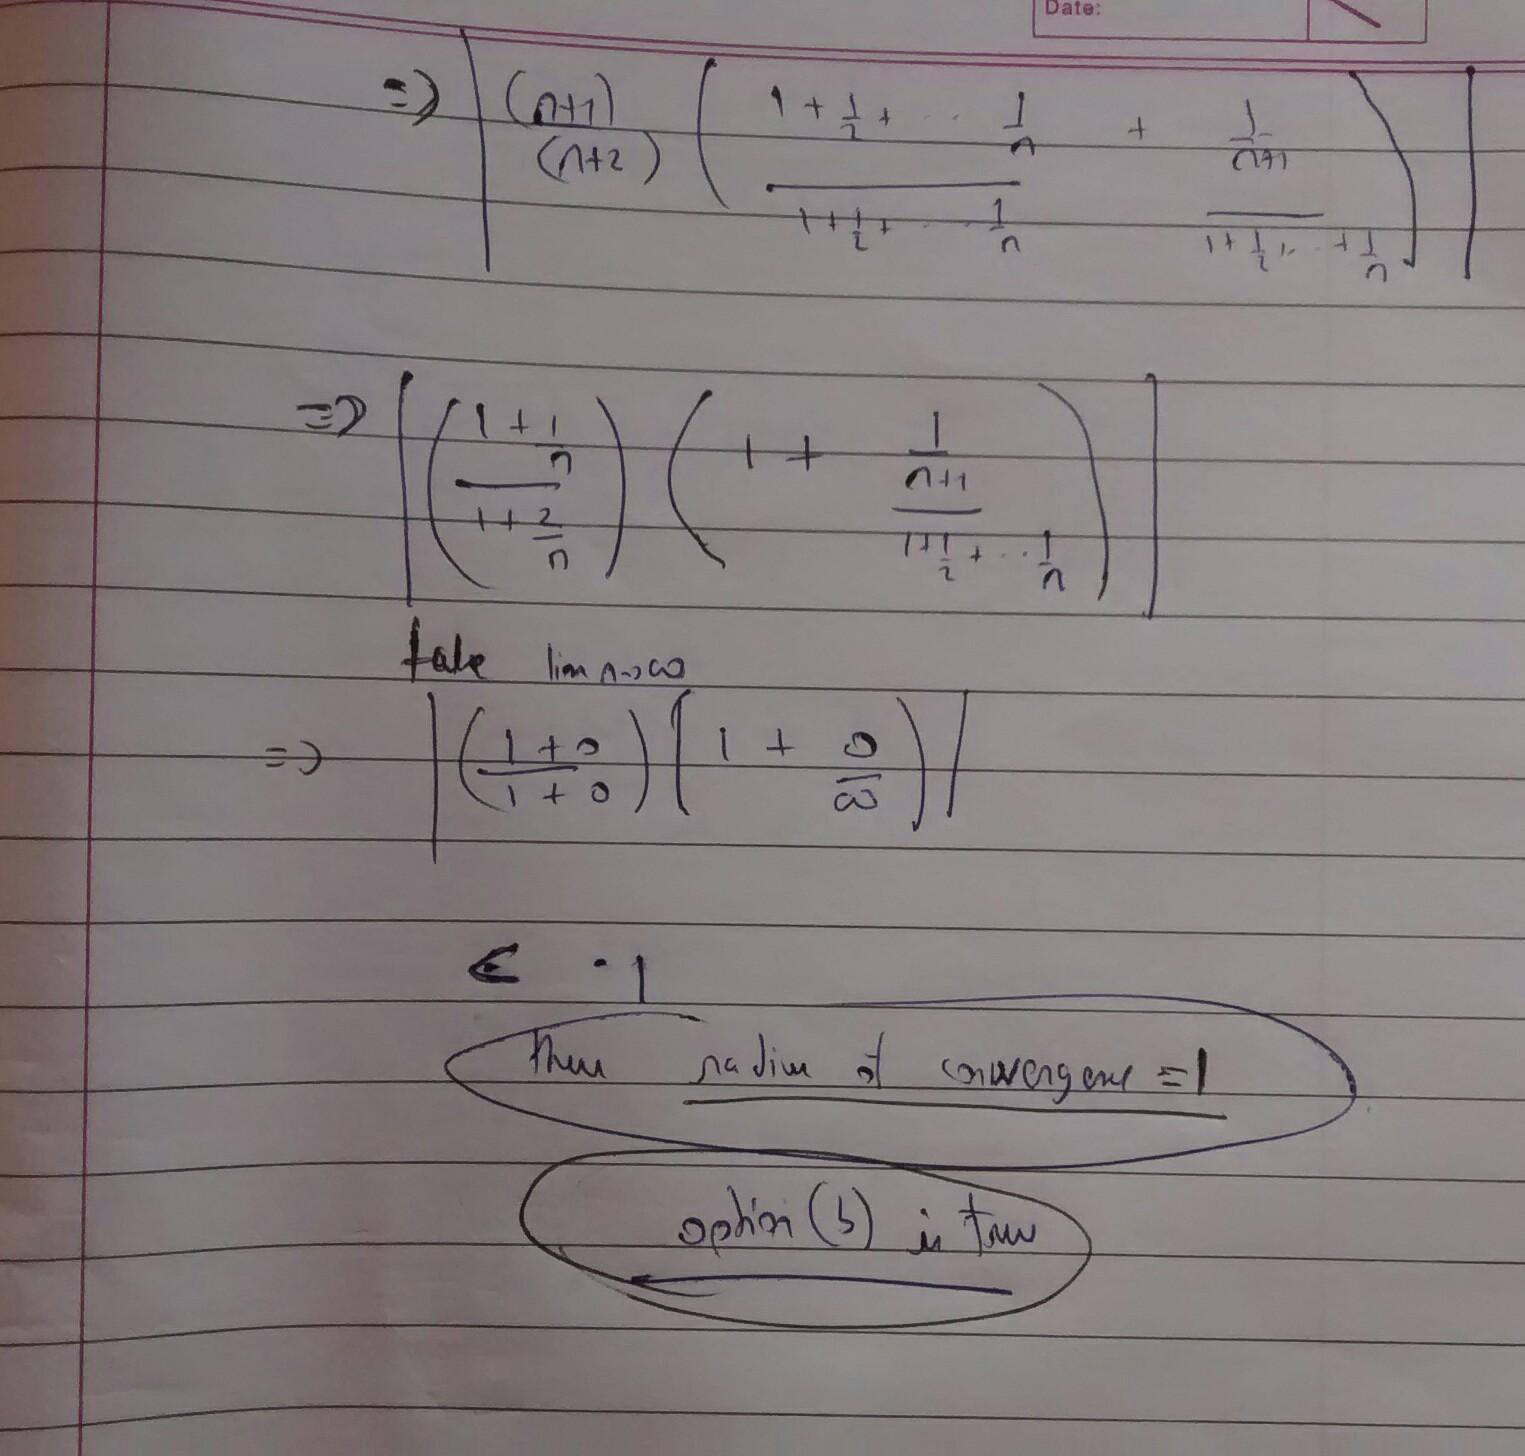 Date:
=> | (n+1)/(n+2) ( (1 + 1/2 + ... 1/n)/(1 + 1/2 + ... 1/n) + (1/(n+1))/(1 + 1/2 + ... + 1/n) ) |
=> | ( (1 + 1/n)/(1 + 2/n) ) ( 1 + (1/(n+1))/(1 + 1/2 + ... 1/n) ) |
take lim n→∞
=> | ( (1 + 0)/(1 + 0) ) ( 1 + 0/∞ ) |
1
radius of convergence = 1
option (b) is true